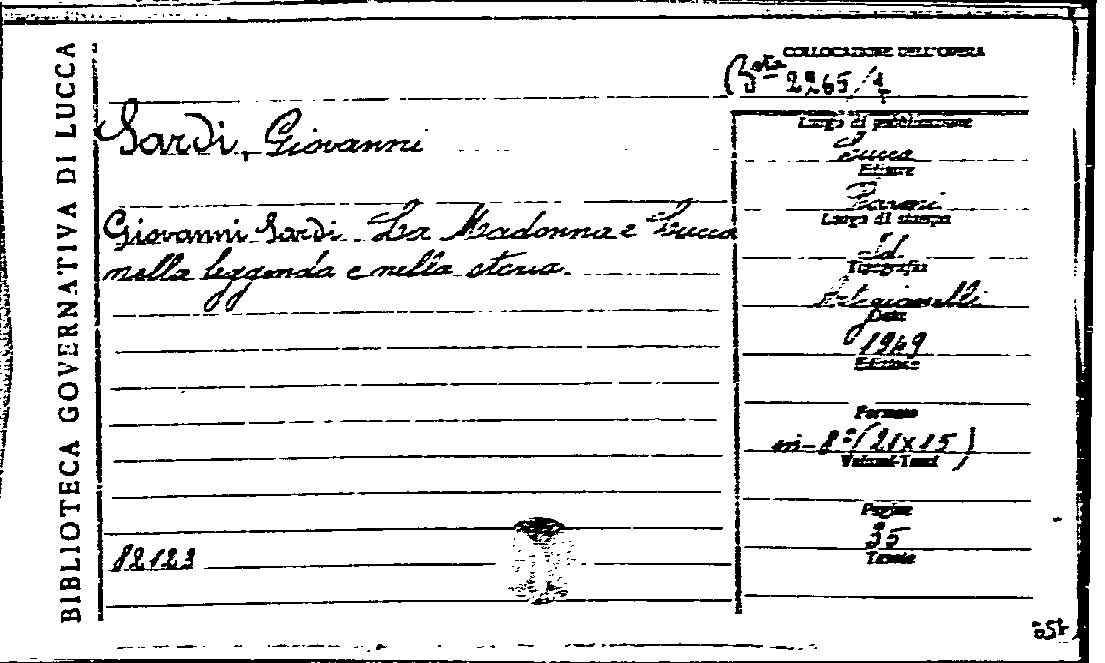 BIBLIOTECA GOVERNATIVA DI LUCCA
COLLOCAZIONE DELL'OPERA
Bta 2265/1
Sardi, Giovanni
Giovanni Sardi. La Madonna e Lucca
nella leggenda e nella storia.
82123
Luogo di pubblicazione
Lucca
Editore
Luogo di stampa
Id.
Tipografia
Artigianelli
Data
1949
Edizione
Formato
in-8º (21x15)
Volumi-Tomi
Pagine
35
Tavole